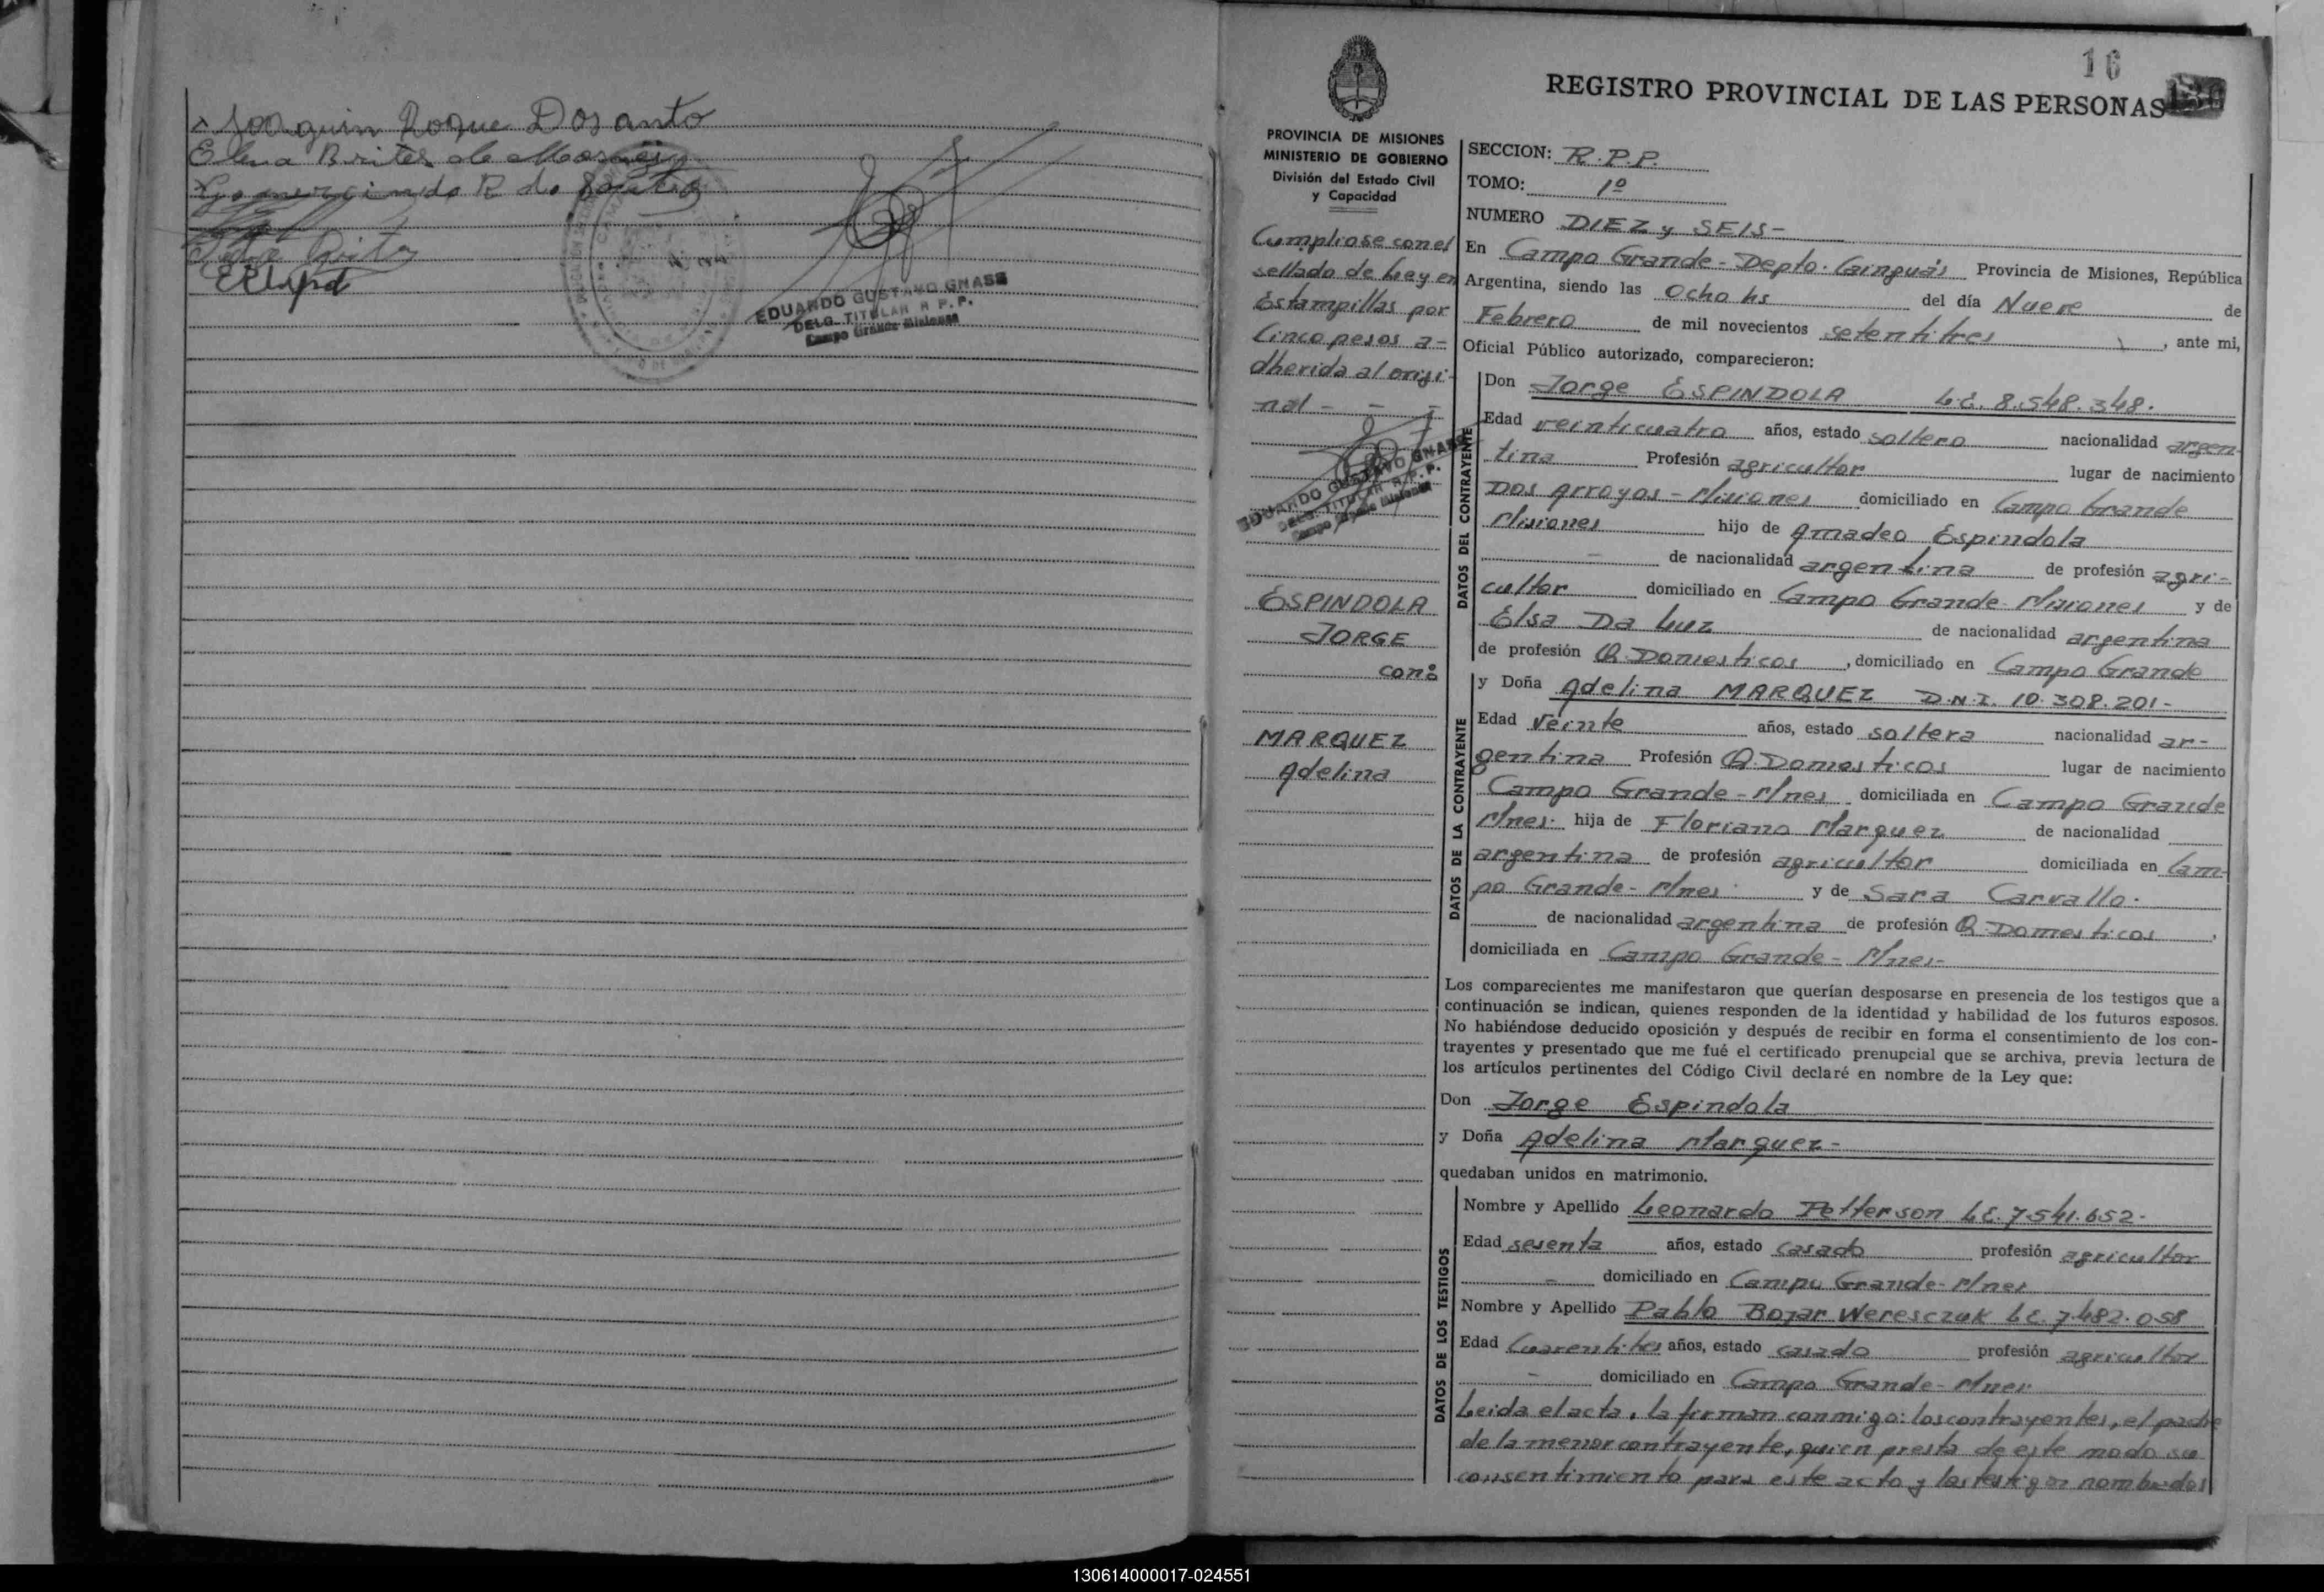 Joaquin Roque Dosanto
Elena Brites de
R do
EDUARDO GUSTAVO GNASS
DELG. TITULAR R. P. P.
Campo Grande Misiones
16
REGISTRO PROVINCIAL DE LAS PERSONAS
PROVINCIA DE MISIONES
MINISTERIO DE GOBIERNO
División del Estado Civil
y Capacidad
Cumpliose con el
sellado de Ley en
Estampillas por
Cinco pesos a-
dherida al origi-
nal - - -
EDUARDO GUSTAVO GNASS
DELG. TITULAR R. P. P.
Campo Grande Misiones
ESPINDOLA
JORGE
con:
MARQUEZ
Adelina
SECCION: R.P.P.
TOMO: 1º
NUMERO DIEZ y SEIS-
En Campo Grande - Depto. Cainguás Provincia de Misiones, República
Argentina, siendo las Ocho hs del día Nueve de
Febrero de mil novecientos setentitres, ante mi,
Oficial Público autorizado, comparecieron:
DATOS DEL CONTRAYENTE
Don Jorge ESPINDOLA L.E. 8.548.348.
Edad veinticuatro años, estado soltero nacionalidad argen-
tina Profesión agricultor lugar de nacimiento
Dos Arroyos - Misiones domiciliado en Campo Grande
Misiones hijo de Amadeo Espindola
- de nacionalidad argentina de profesión agri-
cultor domiciliado en Campo Grande - Misiones y de
Elsa Da Luz de nacionalidad argentina
de profesión Q. Domesticos, domiciliado en Campo Grande
DATOS DE LA CONTRAYENTE
y Doña Adelina MARQUEZ D.N.I. 10.308.201-
Edad Veinte años, estado soltera nacionalidad ar-
gentina Profesión Q. Domesticos lugar de nacimiento
Campo Grande - Mnes. domiciliada en Campo Grande
Mnes. hija de Floriano Marquez de nacionalidad
argentina de profesión agricultor domiciliada en Cam-
po Grande - Mnes. y de Sara Carvallo.
de nacionalidad argentina de profesión Q. Domesticos,
domiciliada en Campo Grande - Mnes-
Los comparecientes me manifestaron que querían desposarse en presencia de los testigos que a
continuación se indican, quienes responden de la identidad y habilidad de los futuros esposos.
No habiéndose deducido oposición y después de recibir en forma el consentimiento de los con-
trayentes y presentado que me fué el certificado prenupcial que se archiva, previa lectura de
los artículos pertinentes del Código Civil declaré en nombre de la Ley que:
Don Jorge Espindola
y Doña Adelina Marquez-
quedaban unidos en matrimonio.
DATOS DE LOS TESTIGOS
Nombre y Apellido Leonardo Petterson L.E. 7.541.652-
Edad sesenta años, estado casado profesión agricultor
- domiciliado en Campo Grande - Mnes
Nombre y Apellido Pablo Bojar Weresczuk L.E. 7.482.058
Edad Cuarentitres años, estado casado profesión agricultor
- domiciliado en Campo Grande - Mnes.
Leida el acta, la firman conmigo: los contrayentes, el padre
de la menor contrayente, quien presta de este modo su
consentimiento para este acto y los testigos nombrados
130614000017-024551